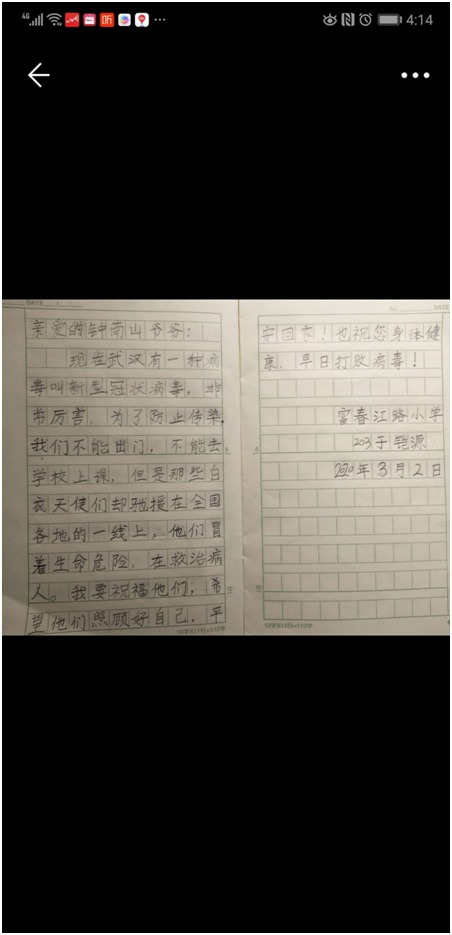 4G
听
4:14
DATE
亲爱的钟南山爷爷：
现在武汉有一种病
毒叫新型冠状病毒，非
常厉害，为了防止传染，
我们不能出门，不能去
学校上课，但是那些白
衣天使们却驰援在全国
各地的一线上，他们冒
着生命危险，在救治病
人。我要祝福他们；希
望他们照顾好自己，平
5
10
10字X11行=110字
No.
DATE
安回家！也祝您身体健
康，早日打败病毒！
富春江路小学
203于铠源
2020年3月2日
5
10
10字X11行=110字